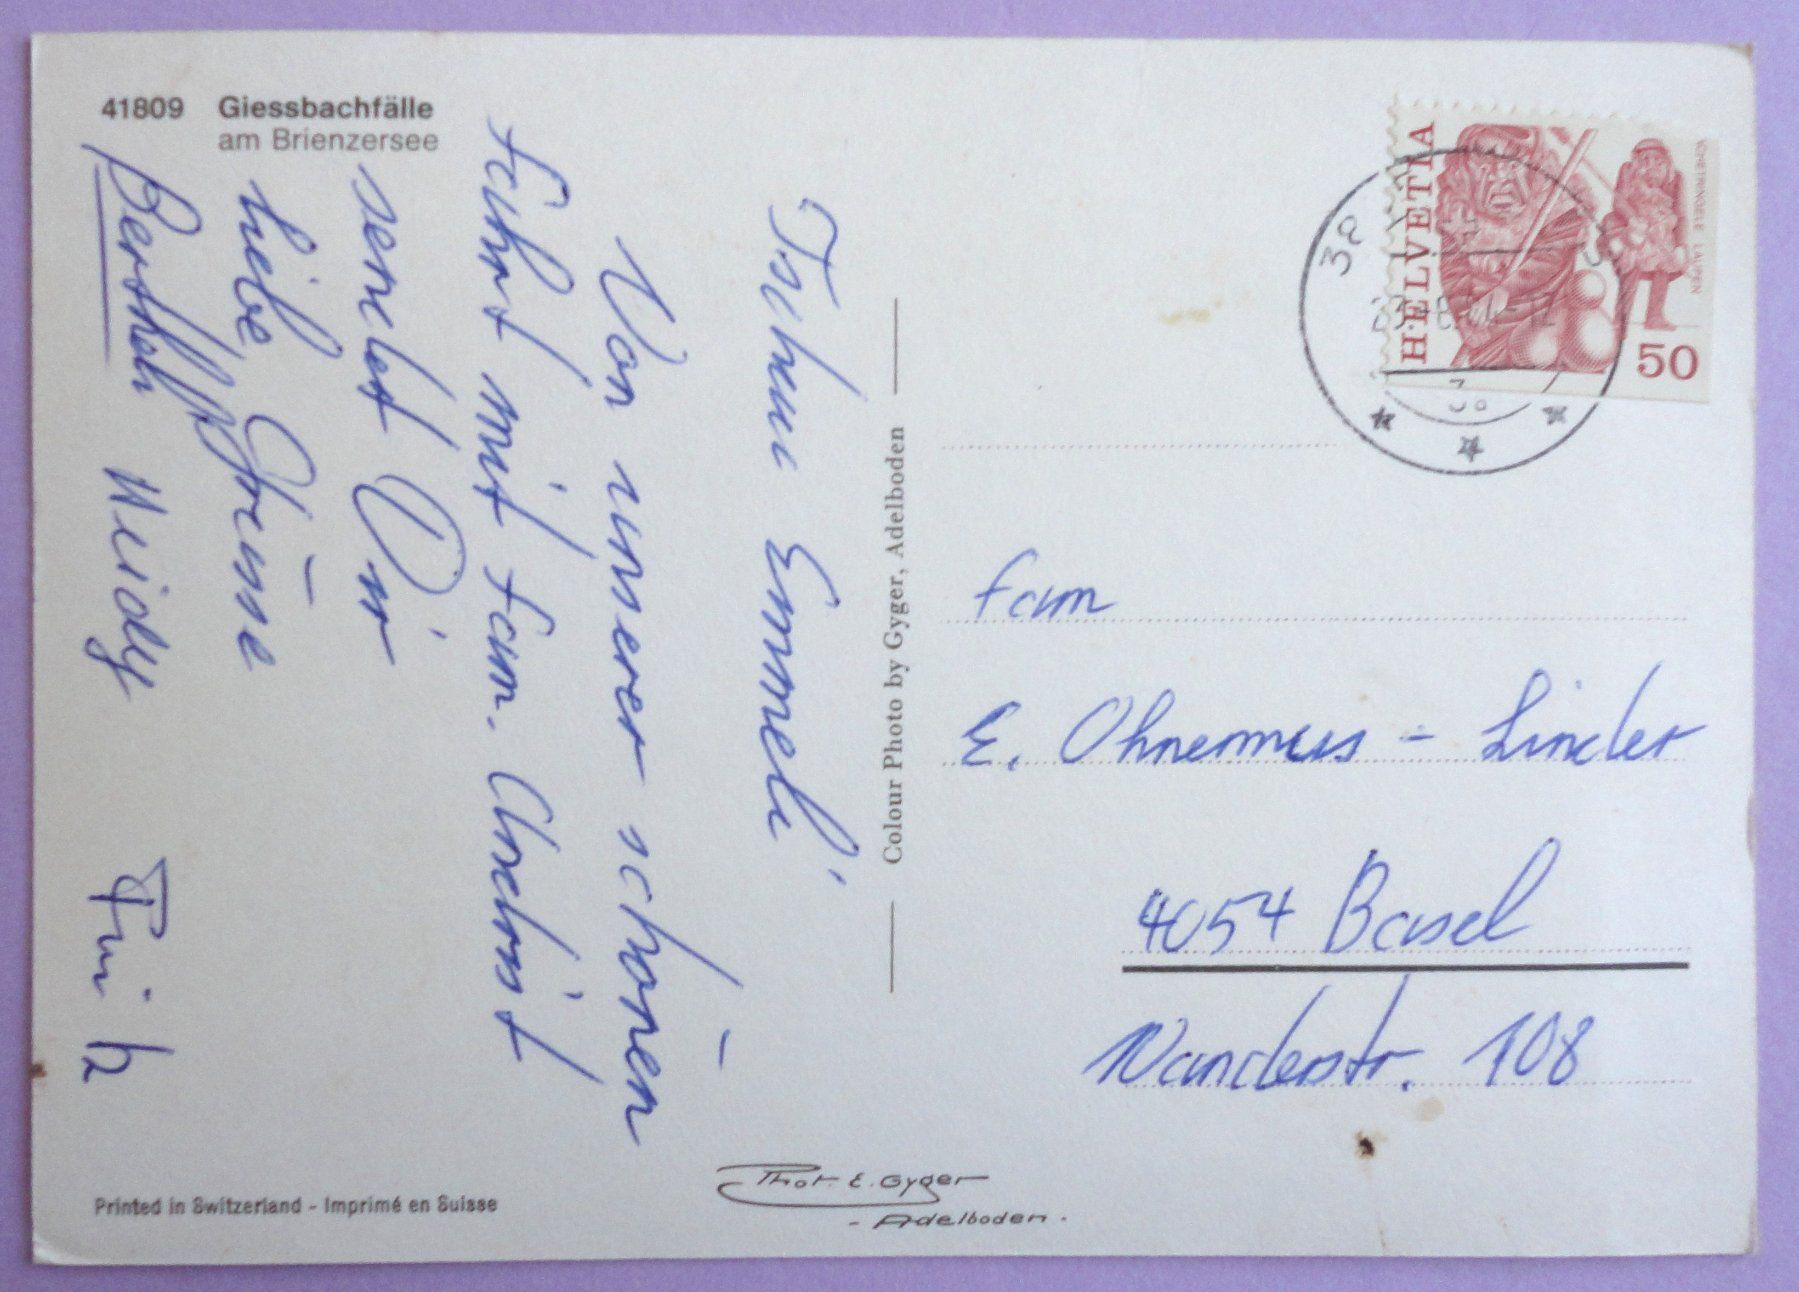 41809 Giessbachfälle
am Brienzersee
Emmeli
Von unserer schönen
Fahrt mit Fam.
sendet Dir
liebe Grüsse
Bertheli Heidy
Colour Photo by Gyger, Adelboden
HELVETIA
50
38
Fam
E. Ohnemus - Linder
4054 Basel
Wanderstr. 108
Printed in Switzerland - Imprimé en Suisse
Phot. E. Gyger
- Adelboden.